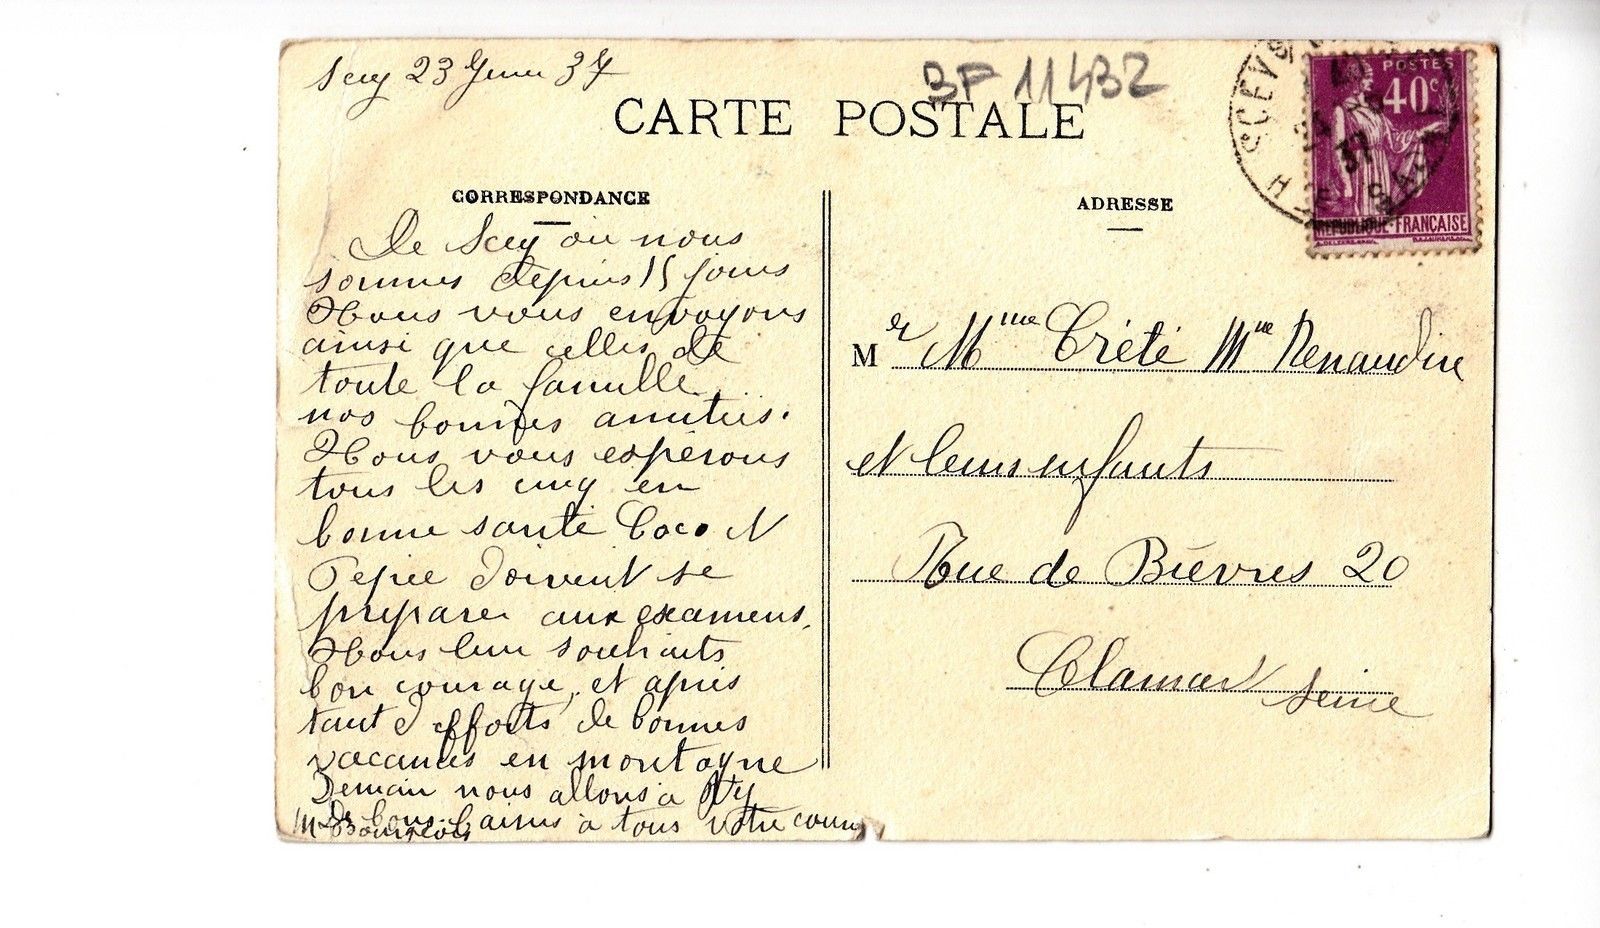 Scey 23 Juin 37
BF 11432
CARTE POSTALE
POSTES
40c
REPUBLIQUE FRANÇAISE
SCEY S
37
H SAONE
CORRESPONDANCE
De Scey où nous
sommes depuis 15 jours
Nous vous envoyons
ainsi que celles de
toute la famille
nos bonnes amitiés.
Nous vous espérons
tous les cinq en
bonne santé Coco et
Pepée doivent se
preparer aux examens.
Nous leur souhaits
bon courage, et après
tant d efforts de bonnes
vacances en montagne
Demain nous allons à
De bons baisers à tous votre
M Bourgeois
ADRESSE
Mr Mme Crété Mme Renaudin
et leurs enfants
Rue de Bièvres 20
Clamart Seine